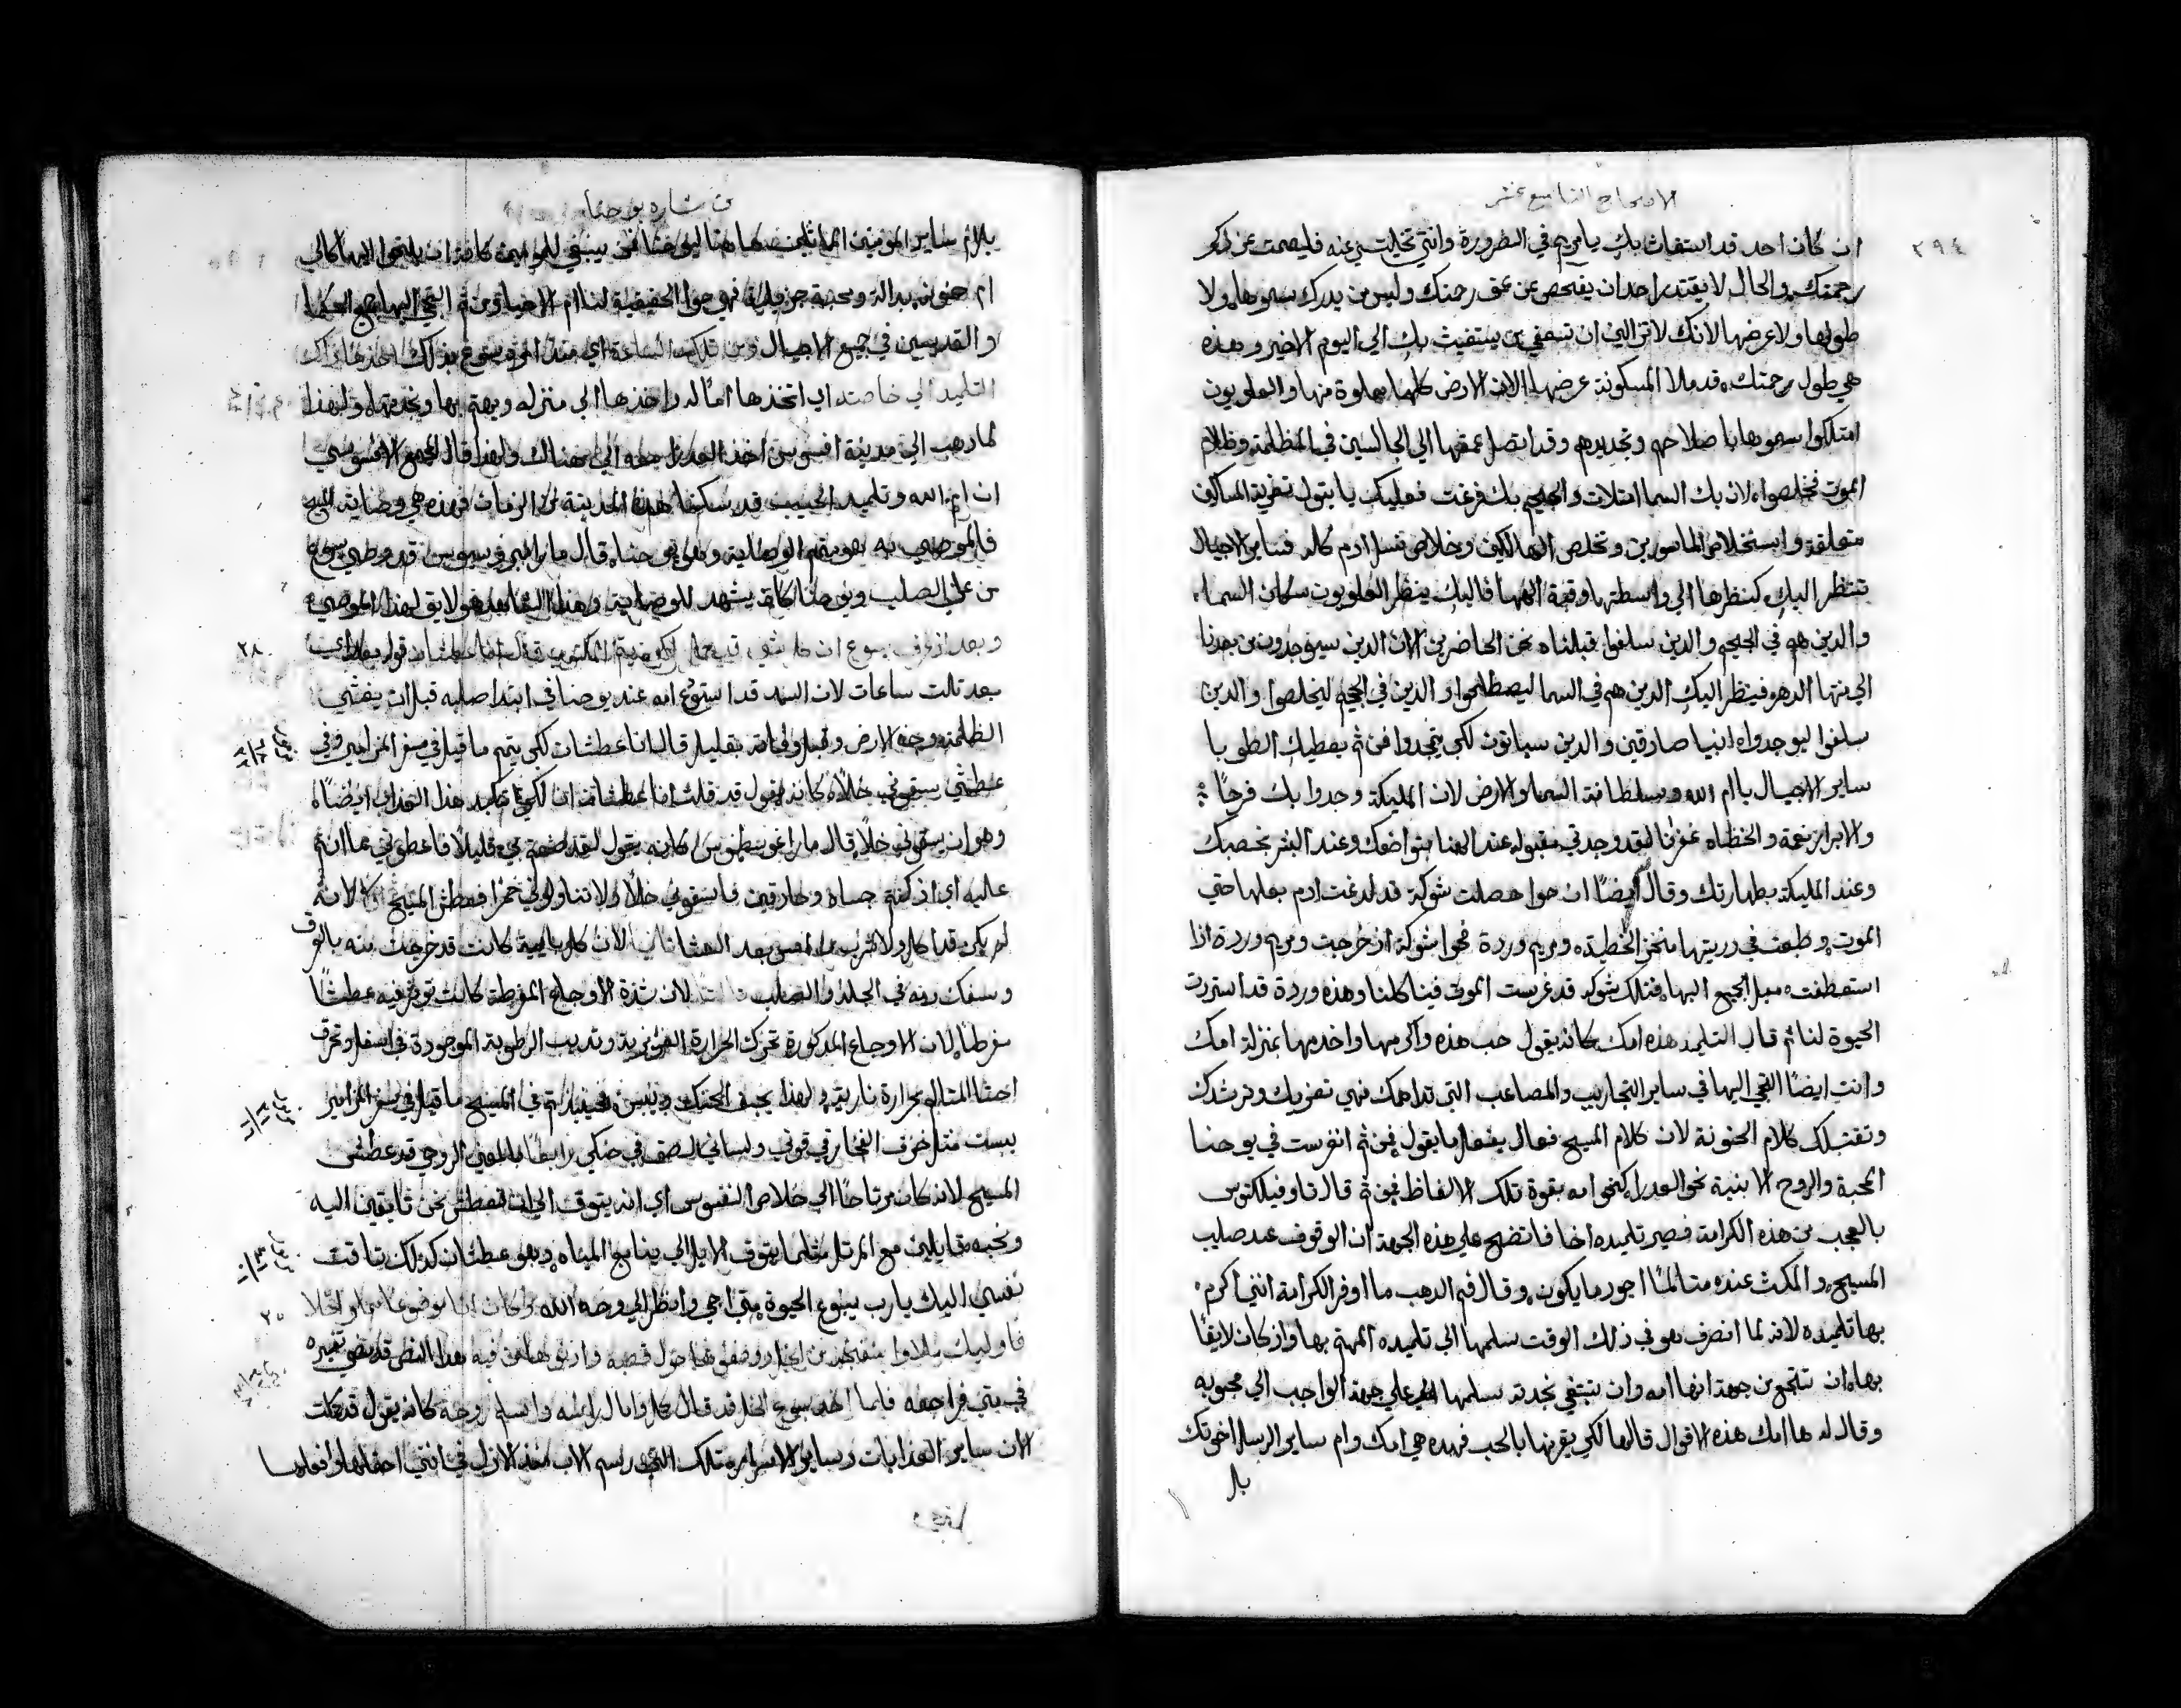 الاصحاح التاسع عشر
٢٩٤
ان كان احد قد استغاث بك يا مريم في الضرورة وانتي تخليتي عنه فليصمت عن ذكر
رحمتك والحال لا يقتدر احد ان يفحص عن عمق رحمتك وليس من يدرك سموها ولا
طولها ولا عرضها لانك لا تزالين ان تسعفي من يستغيث بك الي اليوم الاخير وهذه
هي طول رحمتك قد ملا المسكونة عرضها الان الارض كلها مملوة منها والعلويون
امتلكوا سموها باصلاحهم وتجديدهم وقد اتصل عمقها الي الجالسين في الظلمة وظلام
الموت فخلصوا لان بك السما امتلات والجحيم بك فرغت فعليك يا بتول تعزية المساكين
متعلقة واستخلاص الماسورين وتخلص الهالكين وخلاص نسل ادم كله فساير الاجيال
تنتظر اليك كنظرها الي واسطتها وقصة الهها فاليك ينظر العلويون سكان السما
والذين هم في الجحيم والذين سلفوا قبلنا ونحن الحاضرين الان الذين سيوجدون من بعدنا
الي منتها الدهر فينظر اليك الذين هم في السما ليصطلحوا والذين في الجحيم ليخلصوا والذين
سلفوا ليوجدوا انبيا صادقين والذين سياتون لكي يتمجدوا فمن ثم يعطيك الطوبا
ساير الاجيال يا ام الله وسلطانة السما والارض لان المليكة وجدوا بك فرحًا
والابرار نعمة والخطاه غفرانًا لقد وجدتي مقبوله عند الهنا بتواضعك وعند البشر بخصبك
وعند المليكة بطهارتك وقال ايضًا ان حوا حصلت شوكة قد لدغت ادم بعلها حتي
الموت وطبعت في دريتها منخز الخطيئه ومريم وردة فحوا شوكة اذ جرحت ومريم وردة اذا
استعطفت ميل الجميع اليها فتلك شوكه قد غرست الموت فينا كلنا وهذه وردة قد استردت
الحيوة لنا ثم قال التلميذ هذه امك كانه يقول حب هذه واكرمها واخدمها بمنزلة امك
وانت ايضًا التجي اليها في ساير التجاريب والمصاعب التي تداهمك فهي تعزيك وترشدك
وتقتبلك كالام الحنونة لان كلام المسيح فعال يفعل ما يقول فمن ثم انغرست في يوحنا
المحبة والروح الابنية نحو العدرا كنحو امه بقوة تلك الالفاظ فمن ثم قال تاوفيلكتوس
بالعجب من هذه الكرامة فصير تلميذه اخا فاتضح علي هذه الجهة ان الوقوف عند صليب
المسيح والمكث عنده متالمًا اجود ما يكون وقال فم الدهب ما اوفر الكرامة التي اكرم
بها تلميذه لانه لما انصرف هو في ذلك الوقت سلمها الي تلميذه المهتم بها واذ كان لايقًا
بها ان تتوجع من جهة انها امه وان تبتغي نجدته سلمها علي جهة الواجب الي محبوبه
وقال له ها امك هذه الاقوال قالها لكي يقرنها بالحب فهذه هي امك وام ساير الرسل اخوتك
بل
من بشارة يوحنا
بل ام ساير المومنين
ام حنونه بدالة ومحبة جزيلة فهي حوا الحقيقية لنا ام الاحيا ومن ثم التجي اليها جميع الحكما
والقديسين في جميع الاجيال ومن تلك الساعة اي منذ امر يسوع بذلك اخذها ذاك
التلميذ الي خاصته اي اتخذها امًا له واخذها الي منزله ويهتم بها ويخدمها ولهذا
لما ذهب الي مدينة افسوس اخذ العدرا معه الي هناك ولهذا قال المجمع الافسوسي
ان ام الله وتلميذ الحبيب قد سكنا هذه المدينة من الزمان فهذه هي وصاية المسيح
فالموصي به هو متمم الوصية وهو يوحنا قال مار امبروسيوس قد وصي يسوع
من علي الصليب ويوحنا كان يشهد للوصاية وهذا الشاهد هو لايق لهذا الموصي
٢٨
وبعد اذ عرف يسوع ان كل شي قد كمل لكي يتم المكتوب قال انا عطشان
بعد تالت ساعات لان السيد قد استودع امه عند يوحنا في ابتدا صلبه قبل ان يغشي
الظلمة وجه الارض وقبل وفاته بقليل قال انا عطشان لكي يتم ما قيل في سفر المزامير وفي
عطشي سقوني خلًا كانه يقول قد قلت انا عطشان لكي اكابد هذا العذاب ايضًا
وهو ان يسقوني خلًا قال مار اغوسطينوس كانه يقول لقد قليلًا فاعطوني مما انتم
عليه اي اذ كنتم جساة وحاذقين فاسقوني خلًا ولا تناولوني خمرًا فعطش المسيح لانه
لم يكن قد اكل ولا شرب من امس بعد العشا لان كل مايية كانت قد خرجت منه بالعرق
وسفك دمه في الجلد والصلب لان شدة الاوجاع المفرطة كانت توثر فيه عطشًا
مفرطًا لان الاوجاع المذكورة تحرك الحرارة الغريزية وتذيب الرطوبة الموجودة في اسفل وتحرق
احشا المتالم بحرارة نارية ولهذا يجف الحنك وييبس فحينيذ تم في المسيح ما قيل في سفر المزامير
يبست مثل خزف الفخار في قوتي ولساني لصق في حنكي رابعًا بالمعني الروحي قد عطش
المسيح لانه كان مرتاحًا الي خلاص النفوس اي انه يتوق الي ان نعطش نحن تايقين اليه
ونحبه قايلين مع المرتل مثلما يتوق الايل الي ينابيع المياه وهو عطشان كذلك تاقت
نفسي اليك يا رب ينبوع الحيوة متي اجي وانظر الي وجه الله وكان انا موضوعًا مملوا خلا
فاوليك ملاوا سفنجة من الخل ووضعوها حول قصبة وادنوها من فيه هذا النص قد مضي تفسيره
في متي فراجعه فلما اخذ يسوع الخل قد قال كمل وامال راسه واسلم روحه كانه يقول قد كملت
الان ساير العذابات وساير الاسرار تلك التي رسم الاب منذ الازل في انني احتملها وافعلها